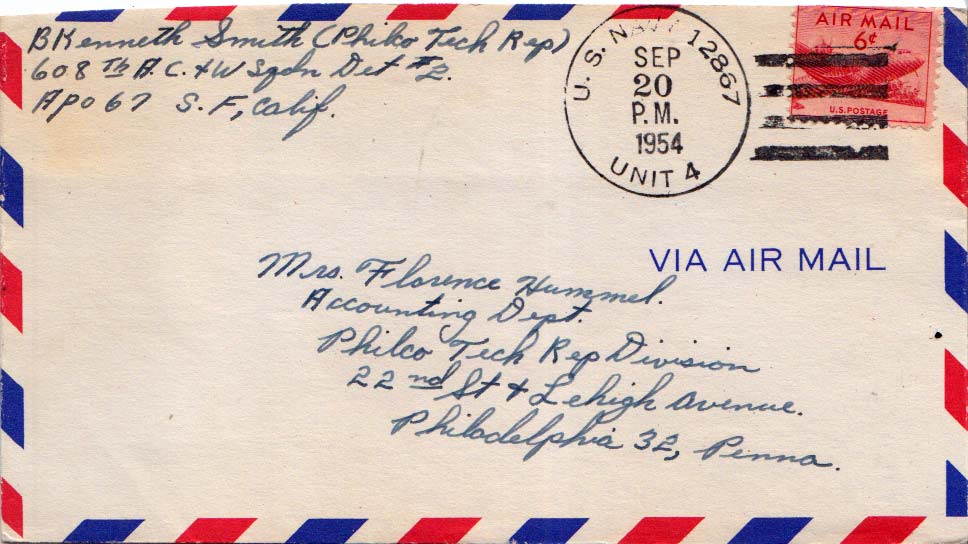 B Kenneth Smith (Philco Tech Rep)
608 TH A.C. + W Sqdn Det #2.
APO 67 S.F, Calif.
U.S. NAVY 12867
SEP
20
P.M.
1954
UNIT 4
AIR MAIL
6¢
U.S. POSTAGE
VIA AIR MAIL
Mrs. Florence Hummel.
Accounting Dept.
Philco Tech Rep Division
22nd St + Lehigh Avenue.
Philadelphia 32, Penna.